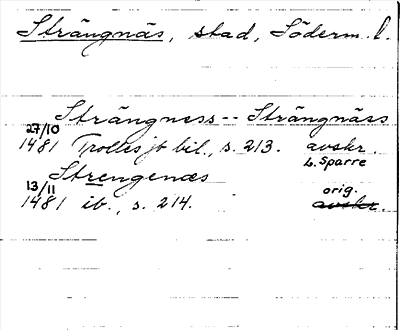 Strängnäs, stad, Söderm. l.
Strängness -- Strängnäss
27/10
1481 Trolles jb bil., s. 213. avskr.
L. Sparre
Strengenæs
13/11 orig.
1481 ib., s. 214. avskr.